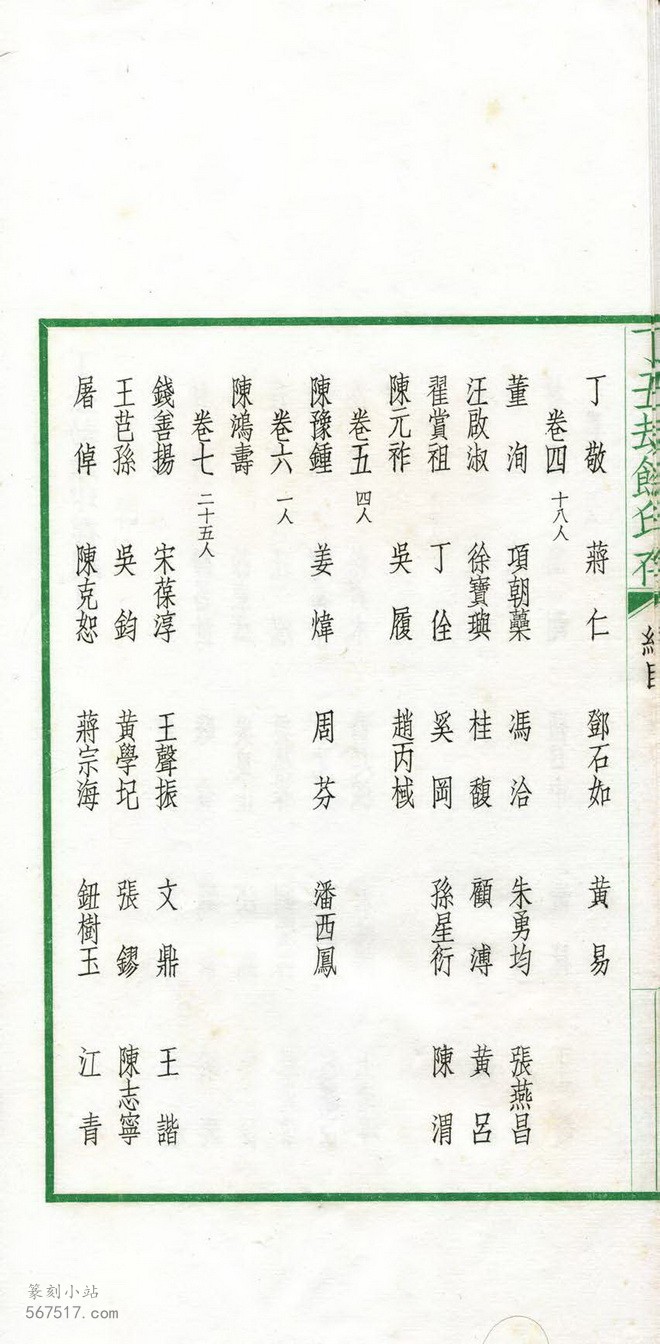 丁丑劫餘印存
總目
丁敬 蔣仁 鄧石如 黃易
卷四 十八人
董洵 項朝蘽 馮洽 朱勇均 張燕昌
汪啟淑 徐寶璵 桂馥 顧溥 黃呂
翟賞祖 丁佺 奚岡 孫星衍 陳渭
陳元祚 吳履 趙丙棫
卷五 四人
陳豫鍾 姜煒 周芬 潘西鳳
卷六 一人
陳鴻壽
卷七 二十五人
錢善揚 宋葆淳 王聲振 文鼎 王諧
王芑孫 吳鈞 黃學圮 張鏐 陳志寧
屠倬 陳克恕 蔣宗海 鈕樹玉 江青
篆刻小站
567517.com